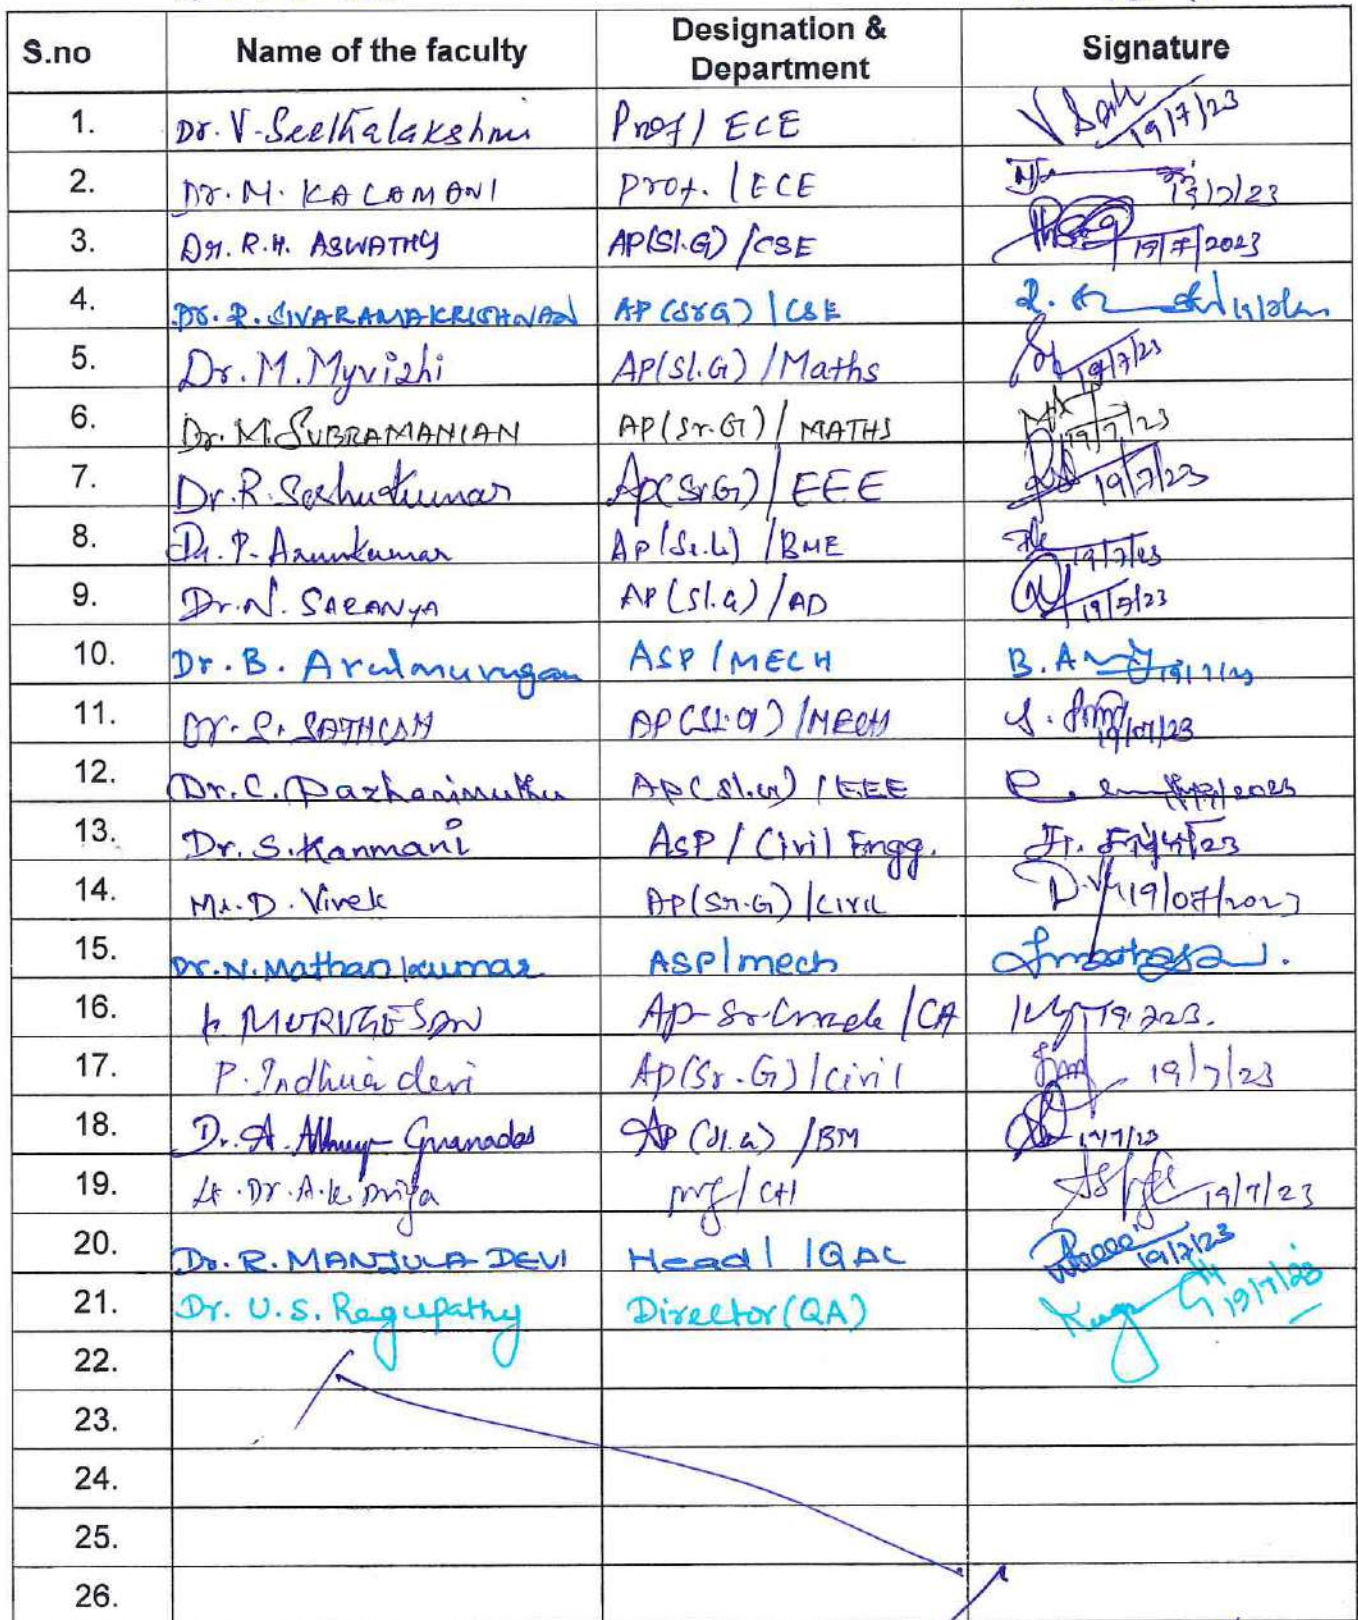 S.no Name of the faculty Designation & Department Signature
1. Dr. V. Seethalakshmi Prof / ECE 19/7/23
2. Dr. M. KALAMANI Prof. / ECE 19/7/23
3. Dr. R.H. ASWATHY AP(Sl.G) / CSE 19/7/2023
4. Dr. R. SIVARAMAKRISHNAN AP (SrG) / CSE R.
5. Dr. M. Myvizhi AP(Sl.G) / Maths 19/7/23
6. Dr. M. SUBRAMANIAN AP(Sr.G) / MATHS 19/7/23
7. Dr. R. Sathish Kumar AP(SrG) / EEE 19/7/23
8. Dr. P. Arunkumar AP(Sr.G) / BME 19/7/23
9. Dr. N. SARANYA AP (Sl.G) / AD 19/7/23
10. Dr. B. Arulmurugan ASP / MECH B. A 19/7/23
11. Dr. S. SATHISH AP(Sl.G) / MECH S. 19/07/23
12. Dr. C. Pazhanimuthu AP(Sl.G) / EEE
13. Dr. S. Kanmani AsP / Civil Engg.
14. Mr. D. Vivek AP(Sr.G) / CIVIL D. 19/07/2023
15. Dr. N. Mathan kumar ASP / mech
16. MURUGESAN AP-Sr.Grade / CA 19.7.23.
17. P. Indhuia devi AP(Sr.G) / civil 19/7/23
18. Dr. A. Gnanadas AP (Sl.G) / BM 19/7/23
19. Lt. Dr. A.K. Priya Prof / CH 19/7/23
20. Dr. R. MANJULA DEVI Head / IQAC 19/7/23
21. Dr. U.S. Ragupathy Director (QA) 19/7/23
22.
23.
24.
25.
26.